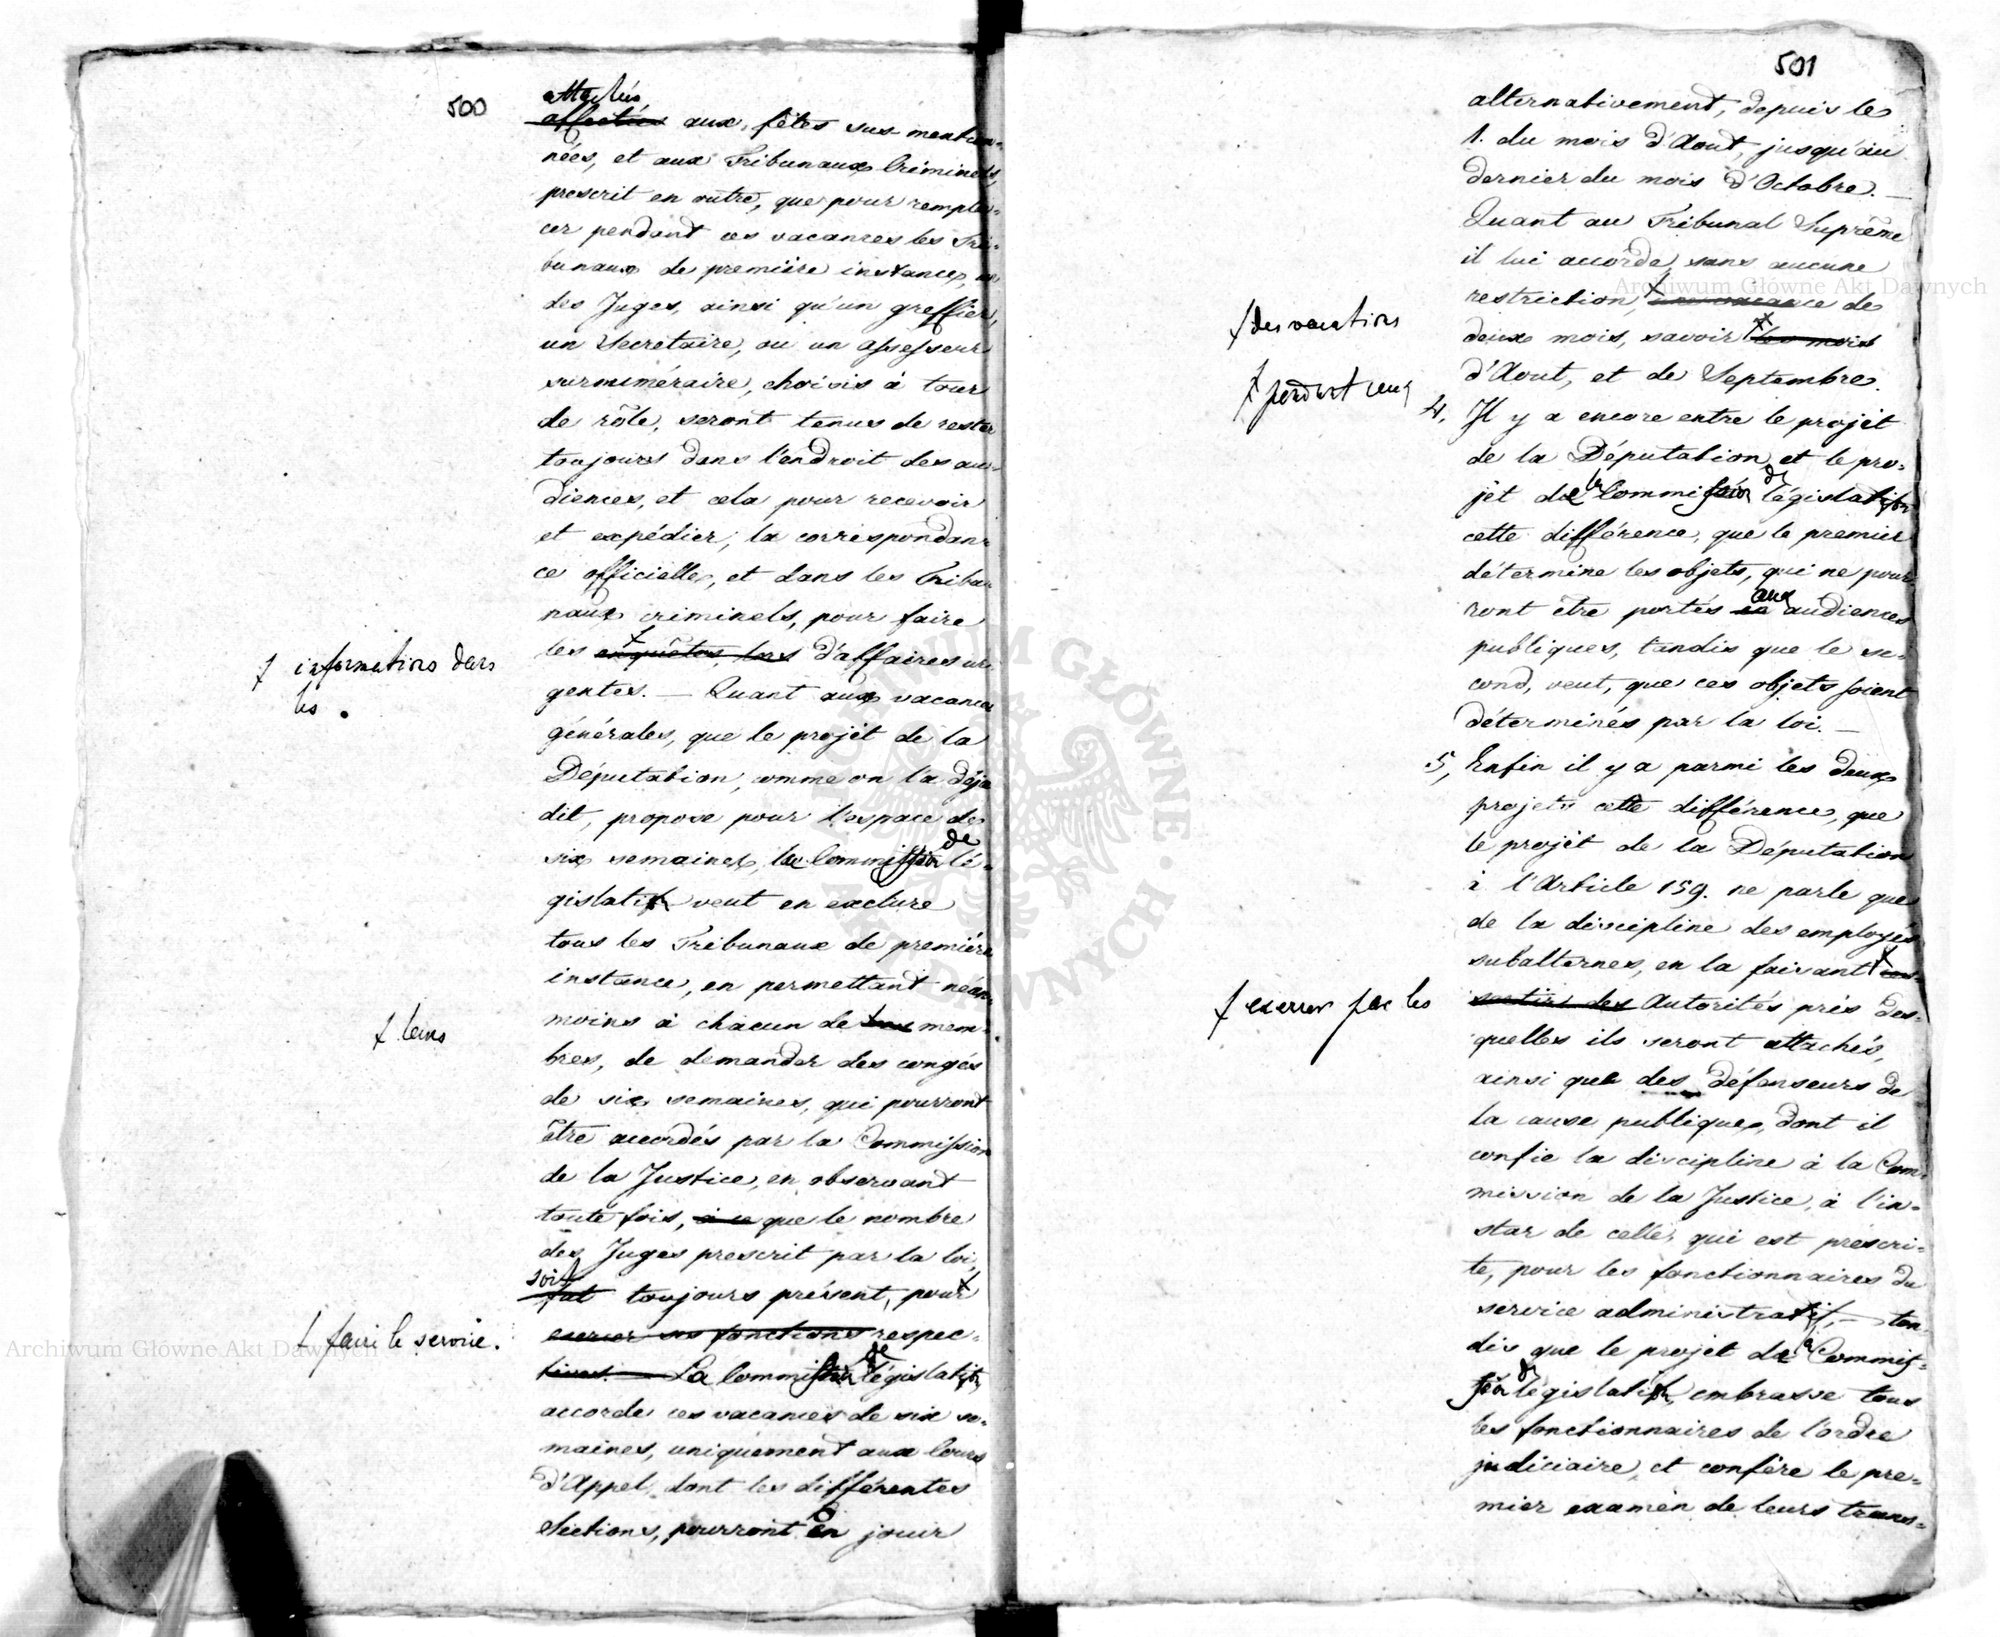 500
attachés
affectées aux fêtes sus mention-
nées, et aux Tribunaux Criminels,
prescrit en outre, que pour rempla-
cer pendant ces vacances les Tri-
bunaux de première instance,
des Juges, ainsi qu'un greffier,
un Secretaire, ou un assesseur
surnuméraire, choisis à tour
de rôle, seront tenus de rester
toujours dans l'endroit des au-
diences, et cela pour recevoir
et expédier, la correspondan-
ce officielle, et dans les Tribu-
naux criminels, pour faire
les enquêtes, lors d'affaires ur-
informations dans
les
gentes. — Quant aux vacances
générales, que le projét de la
Députation, comme on l'a déja
dit, propose pour l'espace de
six semaines, la Commission de lé-
gislation veut en exclure
tous les Tribunaux de première
instance, en permettant néan-
moins à chacun de leurs mem-
leurs
bres, de demander des congés
de six semaines, qui pourront
être accordés par la Commission
de la Justice, en observant
toute fois, à ce que le nombre
des Juges prescrit par la loi,
soit
fut toujours présent, pour
exercer ses fonctions respec-
faire le service.
tives. — La Commission de législation
accorde ces vacances de six se-
maines, uniquement aux Cours
d'Appel, dont les différentes
Sections, pourront en jouir
501
alternativement, depuis le
1. du mois d'Aout, jusqu'au
dernier du mois d'Octobre. —
Quant au Tribunal Suprême
il lui accorde, sans aucune
restriction, une vacance de
des vacations
deux mois, savoir les mois
pendant ceux
d'Aout, et de Septembre.
4, Il y a encore entre le projét
de la Députation, et le pro-
jét de la Commission de législation
cette différence, que le premier
détermine les objets, qui ne pour-
ront être portés aux audiences
publiques, tandis que le se-
cond, veut, que ces objets soient
déterminés par la loi. —
5, Enfin il y a parmi les deux
projets cette différence, que
le projét de la Députation
à l'Article 159. ne parle que
de la discipline des employés
subalternes, en la faisant res-
sortir des Autorités près des-
exercer par les
quelles ils seront attachés,
ainsi que des défenseurs de
la cause publique, dont il
confie la discipline à la Com-
mission de la Justice, à l'in-
star de celle, qui est préscri-
te, pour les fonctionnaires du
service administratif, — tan-
dis que le projet de la Commis-
sion de législation, embrasse tous
les fonctionnaires de l'ordre
judiciaire, et confère le pre-
mier examén de leurs trans-
Archiwum Główne Akt Dawnych
Archiwum Główne Akt Dawnych
ARCHIWUM GŁÓWNE AKT DAWNYCH